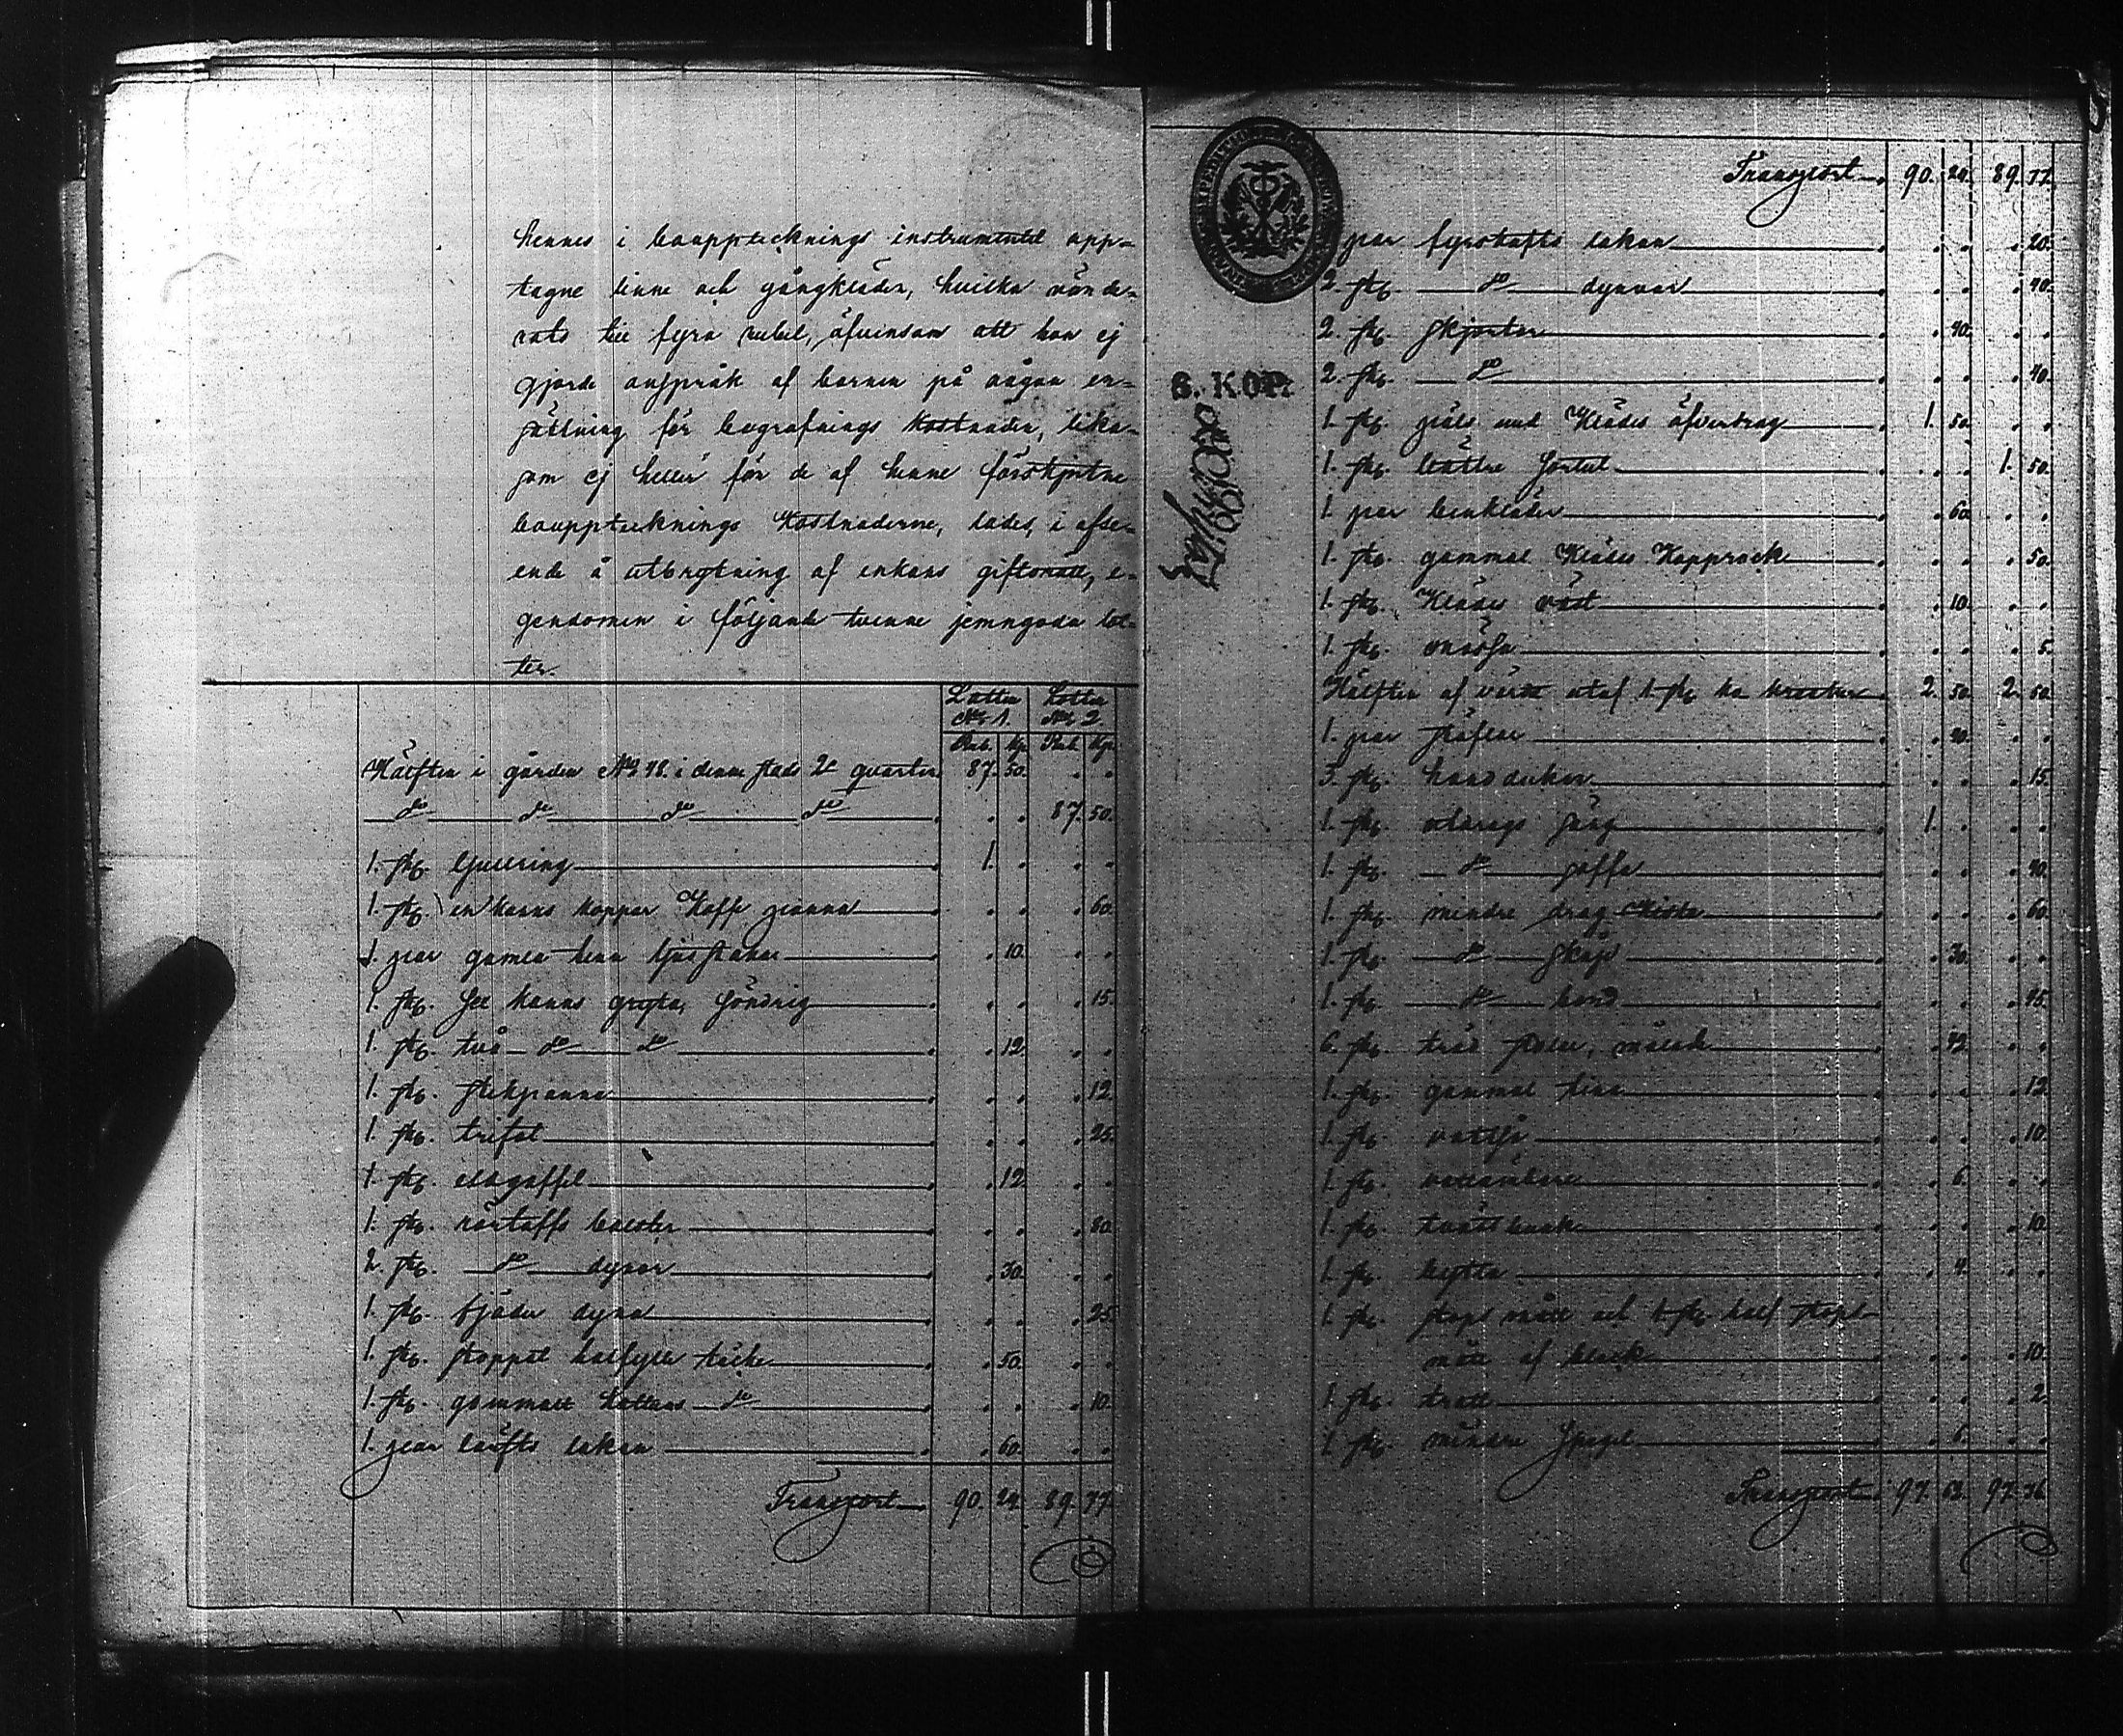 hennes i boupptecknings instrumentet upp-
tagne linne och gångkläder, hvilka värde-
rats till fyra rubel, äfvensom att hon ej
gjorde anspråk af barnen på någon er-
sättning för begrafnings kostnaden, lika-
som ej heller för de af henne förskjutne
boupptecknings kostnaderne, lades, i afse-
ende å utbrytning af enkans giftorätt, e-
gendomen i följande tvenne jemngoda lot-
ter.
Lotten Lotten
No 1. No 2.
Rub. Kp. Rub. Kp.
Hälften i gården No 48. i denna stads 2a quarter 87. 50.
do do do do 87. 50.
1. st. Gullring 1.
1. st. en kanns koppar Kaffe panna 60.
1. par gamla tenn ljusstakar 10.
1. st. sex kanns gryta, söndrig 15.
1. st. två do do 12.
1. st. stekpanna 12.
1. st. trefot 25.
1. st. eldgaffel 12.
1. st. bolster 80.
2. st. do dynor 30.
1. st. fjäder dyna 25.
1. st. stoppat halfylle täcke 50.
1. st. gammalt kattuns do 10.
1. par lärfts lakan 60.
Transport 90. 24. 89. 77.
Transport 90. 24. 89. 77.
par fyrskafts lakan 20.
2. st. do dynvar 40.
2. st. skjortor 40.
S. KOP.
2. st. do 40.
1. st. päls med Klädes öfverdrag 1. 50.
1. st. bättre sortut 1. 50.
1. par benkläder 60.
1. st. gammal Klädes Kapprock 50.
1. st. Klädes väst 10.
1. st. mössa 5.
Hälften af värdet utaf 1 st. ko 2. 50. 2. 50.
1. par stöflar
3. st. handdukar 15.
1. st. utdrags säng 1.
1. st. do soffa 40.
1. st. mindre drag Kista 60.
1. st. do skåp 30.
1. st. do bord 45.
6. st. träd stolar, målade 42.
1. st. gammal tina 12.
1. st. vattså 10.
1. st. vattämbare 6.
1. st. tvättbunk 10.
1. st. bytta 4.
1. st. stop mått och 1 st. half stops
mått af bleck 10.
1. st. tratt 2.
1. st. mindre spegel 6.
Transport 97. 97. 76.